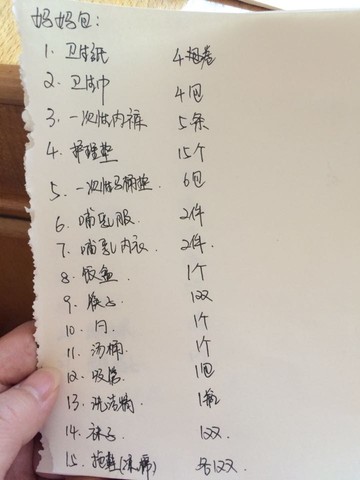 妈妈包:
1. 卫生纸 4卷
2. 卫生巾 4包
3. 一次性内裤 5条
4. 护理垫 15个
5. 一次性马桶垫 6包
6. 哺乳服 2件
7. 哺乳内衣 2件
8. 饭盒 1个
9. 筷子 1双
10. 勺 1个
11. 汤桶 1个
12. 吸管 1包
13. 洗洁精 1瓶
14. 袜子 1双
15. 拖鞋(凉,棉) 各1双